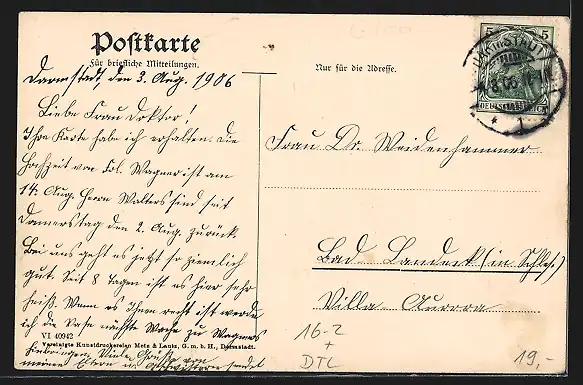 Postkarte
Für briefliche Mitteilungen.
Nur für die Adresse.
Darmstadt, den 3. Aug. 1906
Liebe Frau Doktor!
Ihre Karte habe ich erhalten. Die
Hochzeit von Frl. Wagner ist am
14. Aug. Herrn Walters sind seit
Donnerstag den 2. Aug. zurück.
Bei uns geht es jetzt so ziemlich
gut. Seit 8 Tagen ist es hier sehr
heiß. Wenn es Ihnen recht ist werde
ich die Vase nächste Woche zu Wagners
VI 40942
Vereinigte Kunstdruckereien Metz & Lautz, G. m. b. H., Darmstadt.
hinbringen. Viele Grüße von
meinen Eltern u. Geschwistern sendet
5 5
DEUTSCHES REICH
DARMSTADT
* 1
Frau Dr. Weidenhammer
Bad Landeck (in Schles.)
Villa Aurora
16-2
+
DTL
19,-